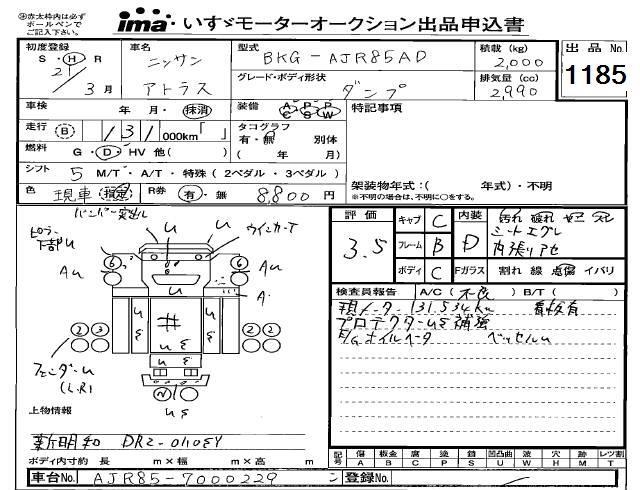 ※赤太枠内は必ず
ボールペンで
ご記入下さい。
ima いすゞモーターオークション出品申込書
初度登録 車名 型式 積載 (kg) 出品 No.
S・H・R ニッサン BKG-AJR85AD 2,000
21 3月 アトラス グレード・ボディ形状 排気量 (cc) 1185
ダンプ 2,990
車検 年 月・抹消 装備 A/C P/S P/W 特記事項
走行 B 131 000km「 」 タコグラフ
有・無 別体
燃料 G・D・HV 他( ) ( 年 月)
シフト 5 M/T・A/T・特殊(2ペダル・3ペダル) 架装物年式:( 年式)・不明
※不明の場合は、不明に○をする。
色 現車 指定 R券 有・無 8,800 円
バンパー突出し
ピラー下部U U U ウインカーT
AU 6 6 AU
U A
U U U
2 3 2 2
フェンダーU
(L.R)
評価 3.5 キャブ C 内装 D
フレーム B 内張りアセ
ボディ C Fガラス 割れ 線 点傷 イバリ
検査員報告 A/C(不良) B/T( )
現メーター131,534km 看板有
プロテクターUS補強
上物情報
新明和 DR2-0110EY
ボディ内寸約 長 m×幅 m×高 m
記号 傷 板金 腐 塗 錆 凹凸曲 波 穴 跡 レツ割
A B C P S U W H M T
車台No. AJR85-7000229 登録No.